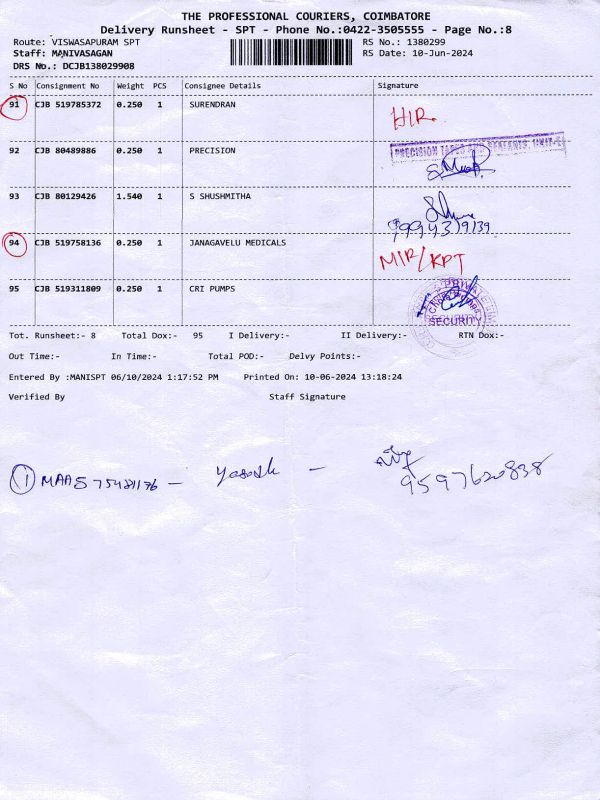 THE PROFESSIONAL COURIERS, COIMBATORE
Delivery Runsheet - SPT - Phone No.:0422-3505555 - Page No.:8
Route: VISWASAPURAM SPT RS No.: 1380299
Staff: MANIVASAGAN RS Date: 10-Jun-2024
DRS No.: DCJB138029908
S No Consignment No Weight PCS Consignee Details Signature
91 CJB 519785372 0.250 1 SURENDRAN HIR.
92 CJB 80489886 0.250 1 PRECISION PRECISION TAPES AND SEALANTS, UNIT-
93 CJB 80129426 1.540 1 S SHUSHMITHA
9994319139
94 CJB 519758136 0.250 1 JANAGAVELU MEDICALS MIR/KPT
95 CJB 519311809 0.250 1 CRI PUMPS SECURITY
Tot. Runsheet:- 8 Total Dox:- 95 I Delivery:- II Delivery:- RTN Dox:-
Out Time:- In Time:- Total POD:- Delvy Points:-
Entered By :MANISPT 06/10/2024 1:17:52 PM Printed On: 10-06-2024 13:18:24
Verified By Staff Signature
1 MAA 575481176 - -
9597620838